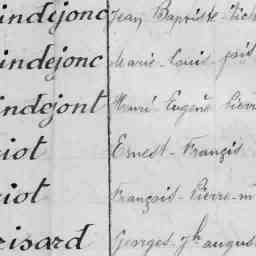 indejonc Jean Baptiste
indejonc Marie-Louis
indejont Henri-Eugène Pierre
iot Ernest-François
iot François-Pierre-m
risard Georges-Jh august